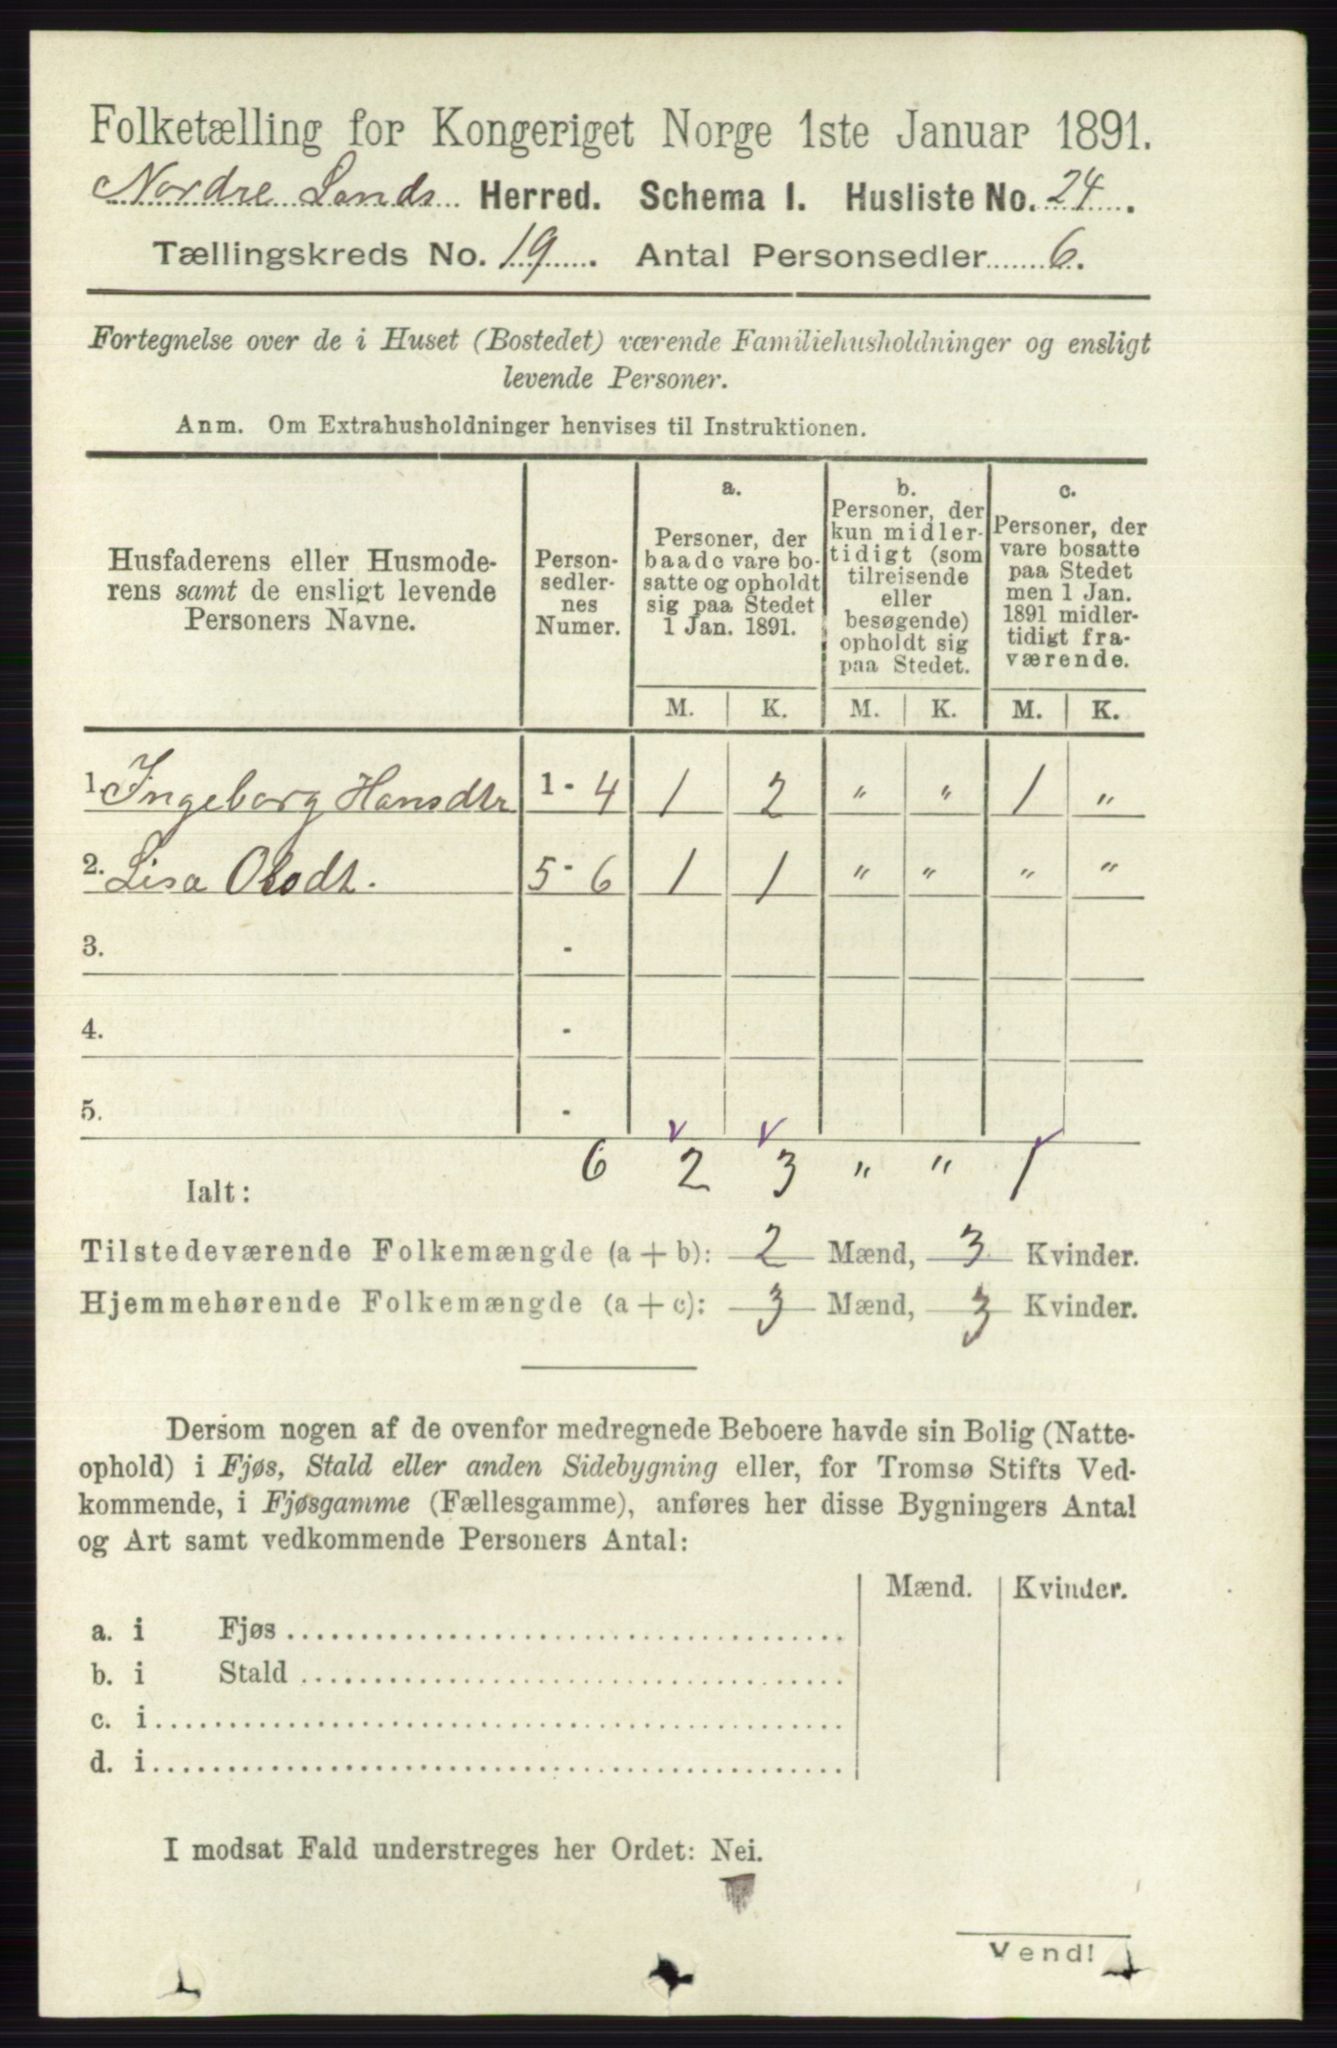 Folketælling for Kongeriget Norge 1ste Januar 1891.
Nordre Lands Herred. Schema I. Husliste No. 24.
Tællingskreds No. 19. Antal Personsedler 6.
Fortegnelse over de i Huset (Bostedet) værende Familiehusholdninger og ensligt
levende Personer.
Anm. Om Extrahusholdninger henvises til Instruktionen.
Husfaderens eller Husmode-
rens samt de ensligt levende
Personers Navne.
Person-
sedler-
nes
Numer.
a.
Personer, der
baade vare bo-
satte og opholdt
sig paa Stedet
1 Jan. 1891.
b.
Personer, der
kun midler-
tidigt (som
tilreisende
eller
besøgende)
opholdt sig
paa Stedet.
c.
Personer, der
vare bosatte
paa Stedet
men 1 Jan.
1891 midler-
tidigt fra-
værende.
M. K. M. K. M. K.
1. Ingeborg Hansdtr 1 - 4 1 2 " " 1 "
2. Lisa Olsdt. 5 - 6 1 1 " " " "
3. -
4. -
5. -
Ialt: 6 2 3 " " 1
Tilstedeværende Folkemængde (a + b): 2 Mænd, 3 Kvinder.
Hjemmehørende Folkemængde (a + c): 3 Mænd, 3 Kvinder.
Dersom nogen af de ovenfor medregnede Beboere havde sin Bolig (Natte-
ophold) i Fjøs, Stald eller anden Sidebygning eller, for Tromsø Stifts Ved-
kommende, i Fjøsgamme (Fællesgamme), anføres her disse Bygningers Antal
og Art samt vedkommende Personers Antal:
Mænd. Kvinder.
a. i Fjøs
b. i Stald
c. i
d. i
I modsat Fald understreges her Ordet: Nei.
Vend!